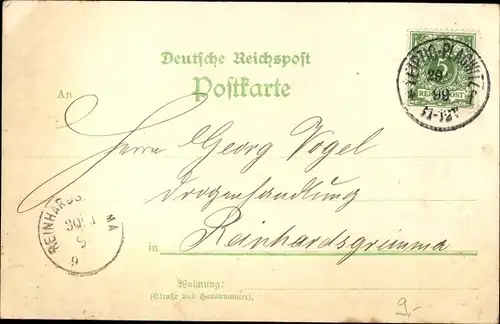 Deutsche Reichspost
Postkarte
LEIPZIG-PLAGWITZ
99
11-12V
5
REICHSPOST
An
Herrn Georg Vogel
Drogenhandlung
in Reinhardsgrimma
REINHARDS MA
9
Wohnung:
(Straße und Hausnummer).
9,-